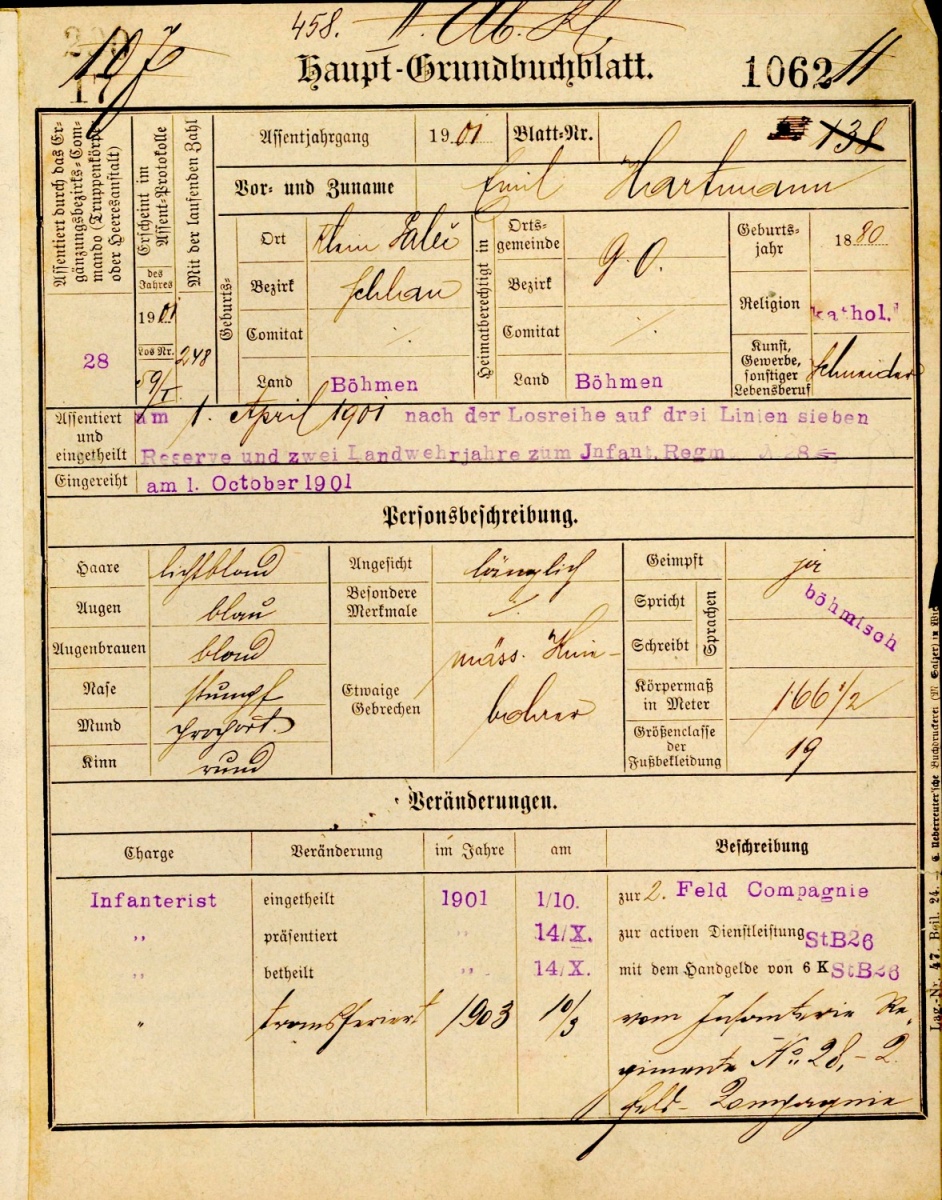 458. II. Ab. Kl.
197
17
Haupt-Grundbuchblatt.
1062 11
Assentiert durch das Er-
gänzungsbezirks-Com-
mando (Truppenkörper
oder Heeresanstalt)
28
Erscheint im
Assent-Protokolle
des
Jahres
1901
Los Nr.
59/I
Mit der laufenden Zahl
248
Assentjahrgang 1901 Blatt-Nr. 138
Vor- und Zuname Emil Hartmann
Geburts-
Ort Klein
Bezirk Schlan
Comitat ⁒
Land Böhmen
Heimatberechtigt in
Orts-
gemeinde
Bezirk
g. O.
Comitat ⁒
Land Böhmen
Geburts-
jahr 1880
Religion kathol.
Kunst,
Gewerbe,
sonstiger
Lebensberuf Schneider
Assentiert
und
eingetheilt
am 1. April 1901 nach der Losreihe auf drei Linien sieben
Reserve und zwei Landwehrjahre zum Jnfant. Regm. № 28
Eingereiht am 1. October 1901
Personsbeschreibung.
Haare lichtblond
Augen blau
Augenbrauen blond
Nase stumpf
Mund proport.
Kinn rund
Angesicht länglich
Besondere
Merkmale ⁒
Etwaige
Gebrechen
mäss. Knie-
bohrer
Geimpft ja
Spricht
Schreibt
Sprachen
böhmisch
Körpermaß
in Meter 166 1/2
Größenclasse
der
Fußbekleidung 19
Veränderungen.
Charge Veränderung im Jahre am Beschreibung
Infanterist eingetheilt 1901 1/10. zur 2. Feld Compagnie
,, präsentiert ,, 14/X. zur activen Dienstleistung StB26
,, betheilt ,, 14/X. mit dem Handgelde von 6 K StB26
" transferiert 1903 10/3 vom Infanterie Re-
gimente No. 28, - 2.
Feld-Compagnie
Lag.-Nr. 47. Beil. 24. — C. Ueberreuter'sche Buchdruckerei (M. Salzer) in